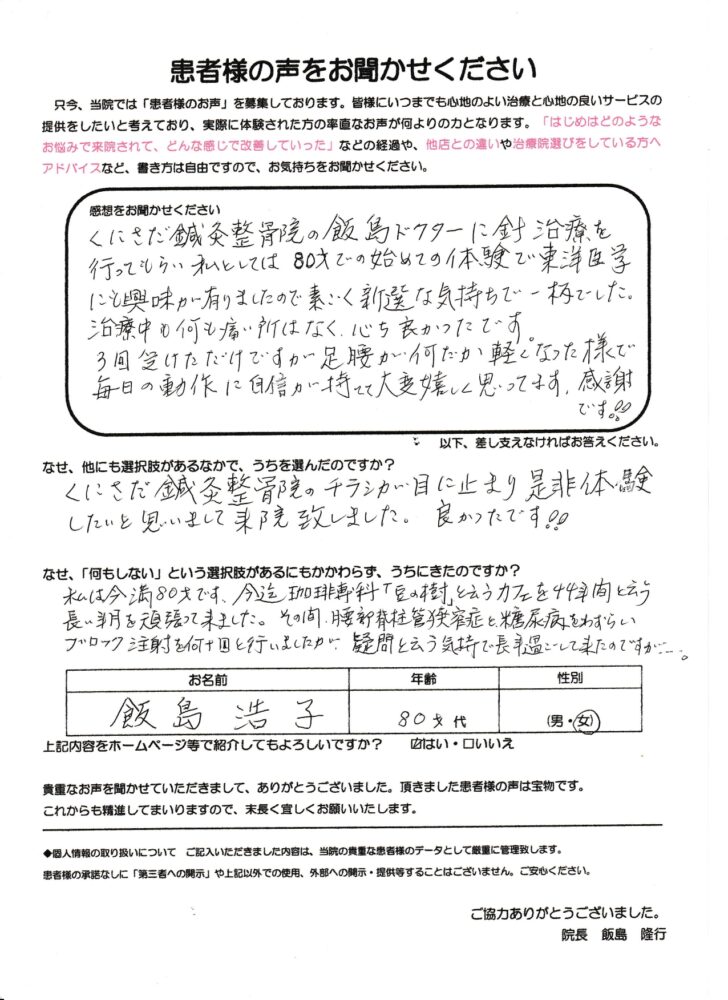 患者様の声をお聞かせください
只今、当院では「患者様のお声」を募集しております。皆様にいつまでも心地のよい治療と心地の良いサービスの
提供をしたいと考えており、実際に体験された方の率直なお声が何よりの力となります。「はじめはどのような
お悩みで来院されて、どんな感じで改善していった」などの経過や、他店との違いや治療院選びをしている方へ
アドバイスなど、書き方は自由ですので、お気持ちをお聞かせください。
感想をお聞かせください
くにさだ鍼灸整骨院の飯島ドクターに針治療を
行ってもらい私としては80才での始めての体験で東洋医学
にも興味が有りましたので素ごく新選な気持ちで一杯でした。
治療中も何も痛い所はなく、心ち良かったです。
3回受けただけですが足腰が何だか軽くなった様で
毎日の動作に自信が持てて大変嬉しく思ってます、感謝
です!!
以下、差し支えなければお答えください。
なぜ、他にも選択肢があるなかで、うちを選んだのですか?
くにさだ鍼灸整骨院のチラシが目に止まり是非体験
したいと思いまして来院致しました。良かったです!!
なぜ、「何もしない」という選択肢があるにもかかわらず、うちにきたのですか?
私は今満80才です、今迄珈琲専科「豆の樹」と云うカフェを44年間と云う
長い年月を頑張って来ました。その間、腰部脊柱管狭窄症と糖尿病をわずらい
ブロック注射を何十回と行いましたが、疑問と云う気持で長年過ごして来たのですが……。
お名前 年齢 性別
飯島 浩子 80才代 (男・女)
上記内容をホームページ等で紹介してもよろしいですか? ☑はい・□いいえ
貴重なお声を聞かせていただきまして、ありがとうございました。頂きました患者様の声は宝物です。
これからも精進してまいりますので、末長く宜しくお願いいたします。
◆個人情報の取り扱いについて ご記入いただきました内容は、当院の貴重な患者様のデータとして厳重に管理致します。
患者様の承諾なしに「第三者への開示」や上記以外での使用、外部への開示・提供等することはございません。ご安心ください。
ご協力ありがとうございました。
院長 飯島 隆行